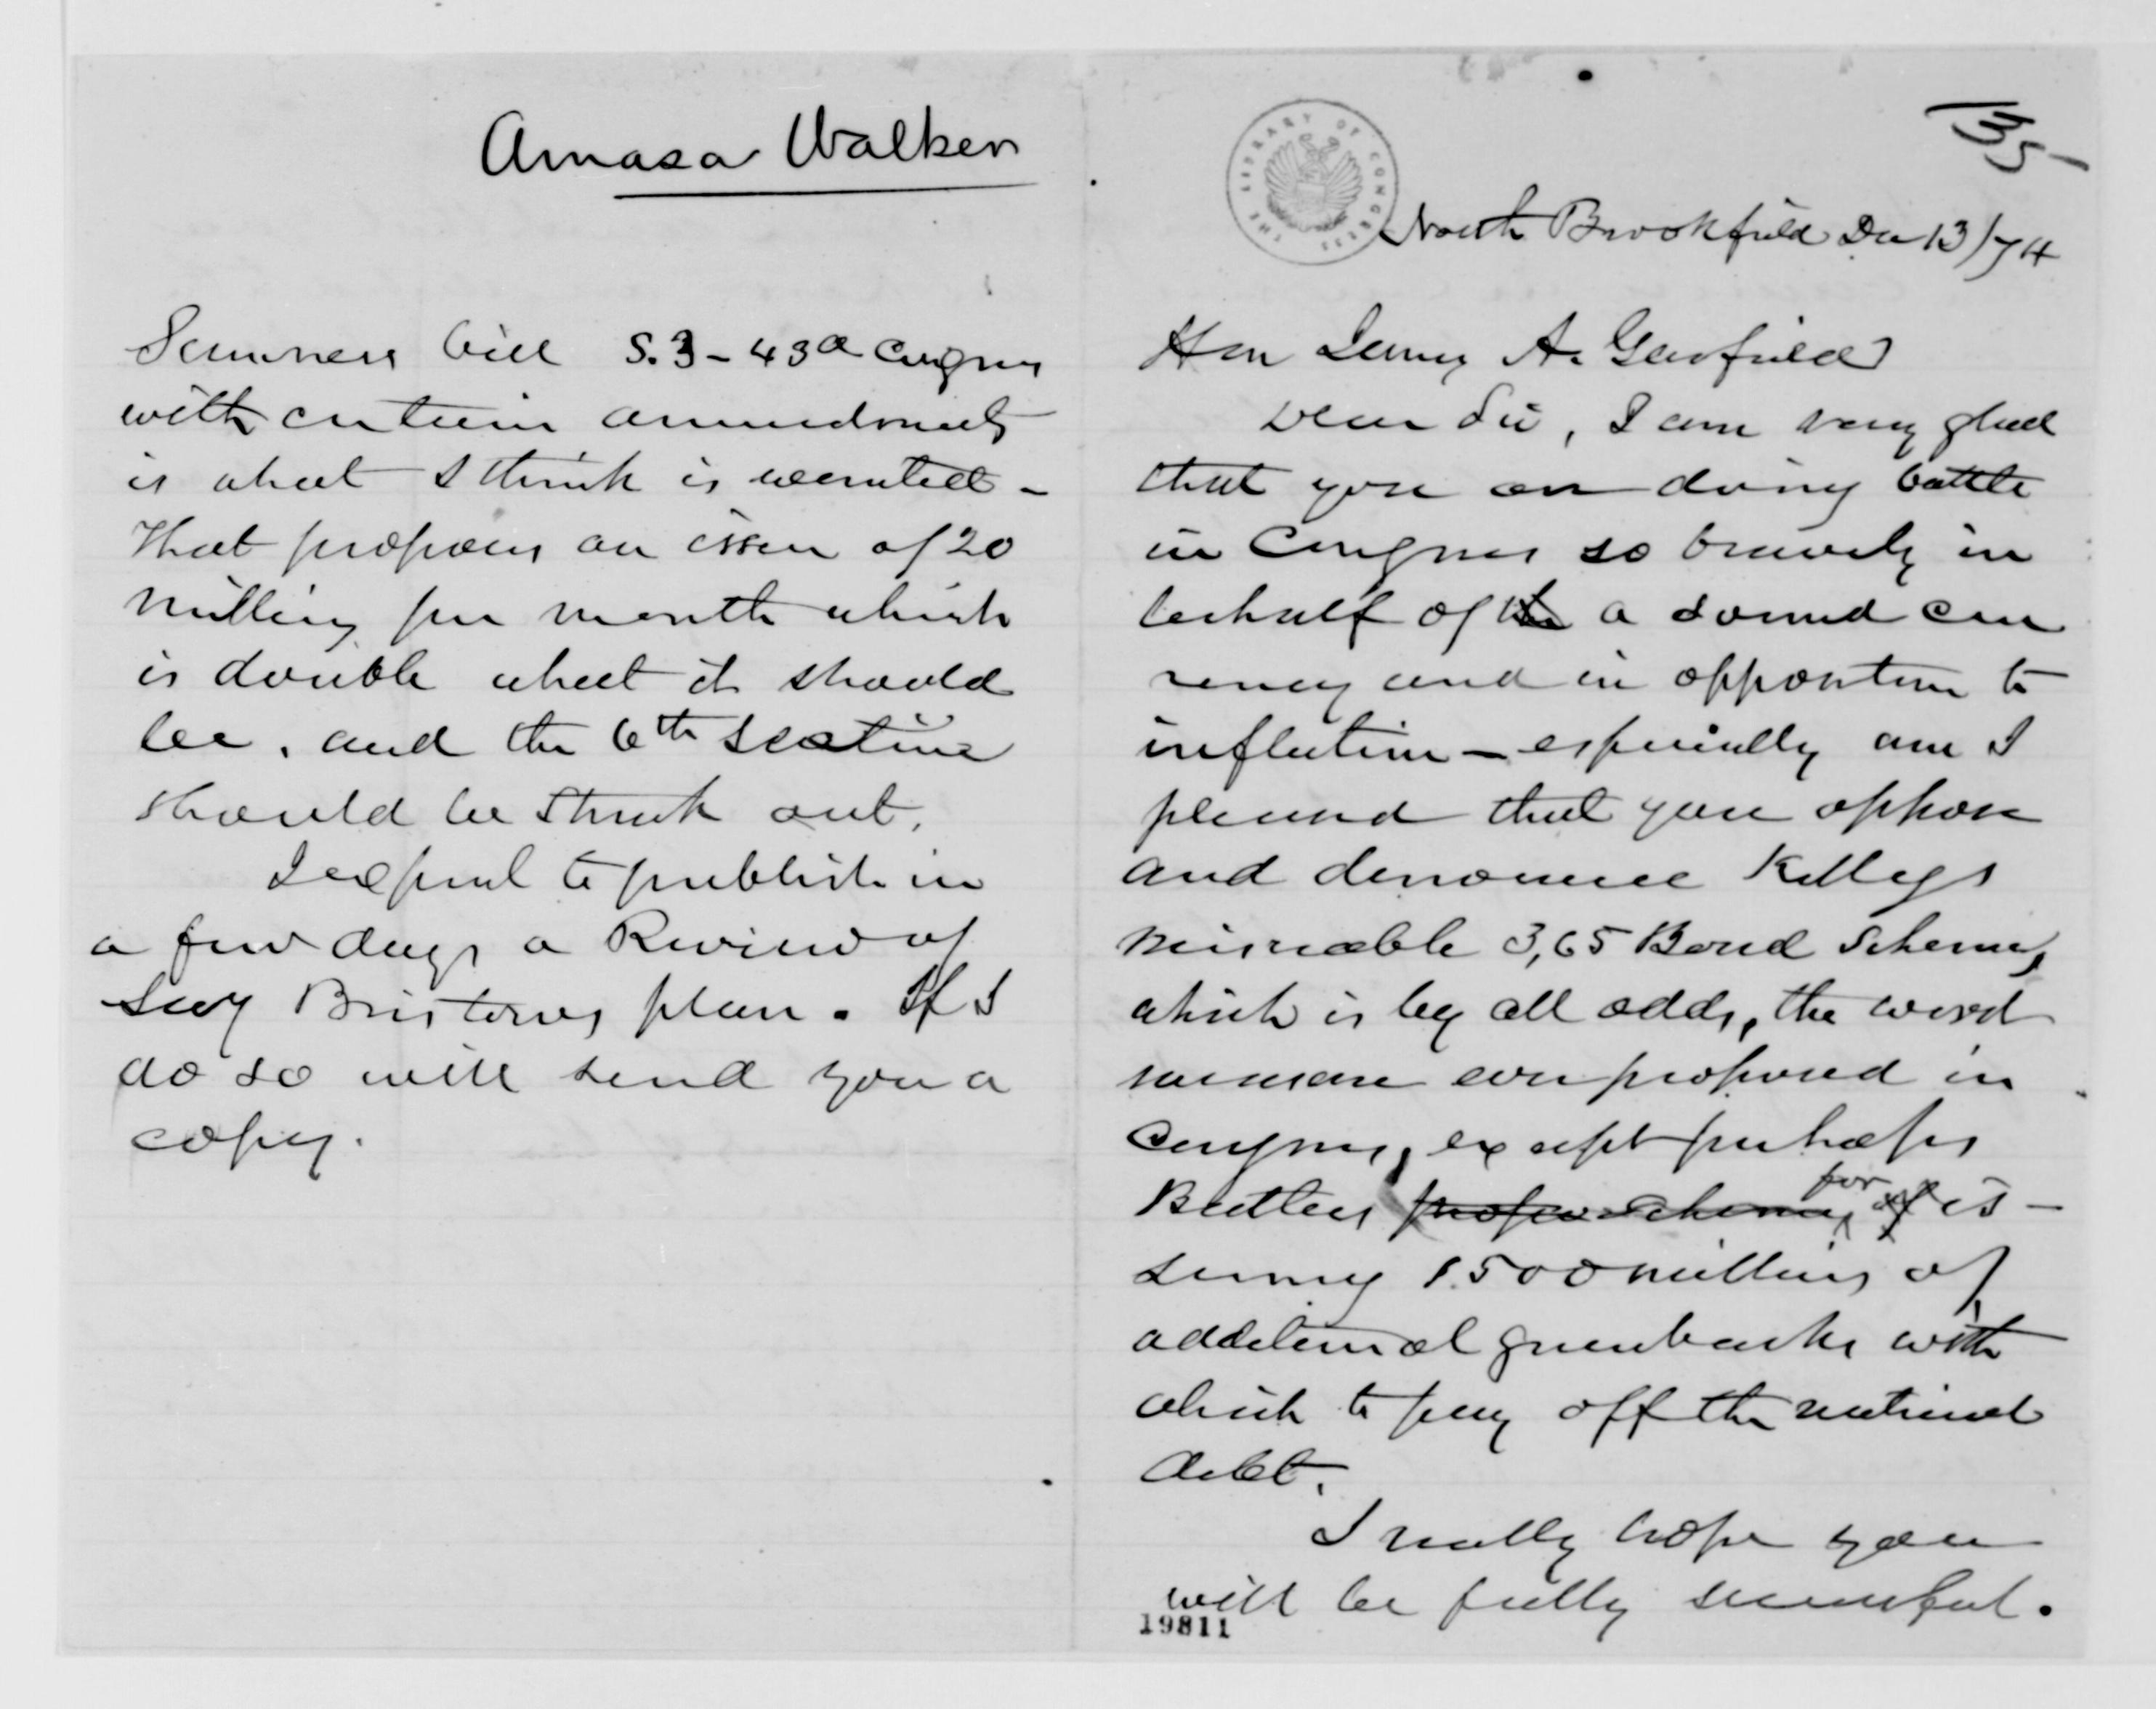 Amasa Walker
Sumners bill S. 3 - 43d Congress
with certain amendments
is what I think is wanted -
That proposes an issue of 20
millions per month which
is double what it should
be, and the 6th section
should be struck out.
I expect to publish in
a few days a Review of
Secy Bristows plan. If I
do so will send you a
copy.
135
THE LIBRARY OF CONGRESS
North Brookfield Dec 13/74
Hon James A. Garfield
Dear Sir, I am very glad
that you are doing battle
in Congress so bravely in
behalf of the a sound cur
rency and in opposition to
inflation - especially am I
pleased that you oppose
and denounce Kelleys
miserable 3,65 Bond Scheme,
which is by all odds, the worst
measure ever proposed in
Congress, except perhaps
Butlers propos scheme for of is-
suing 1500 millions of
additional greenbacks with
which to pay off the national
debt.
I really hope you
will be fully successful.
19811